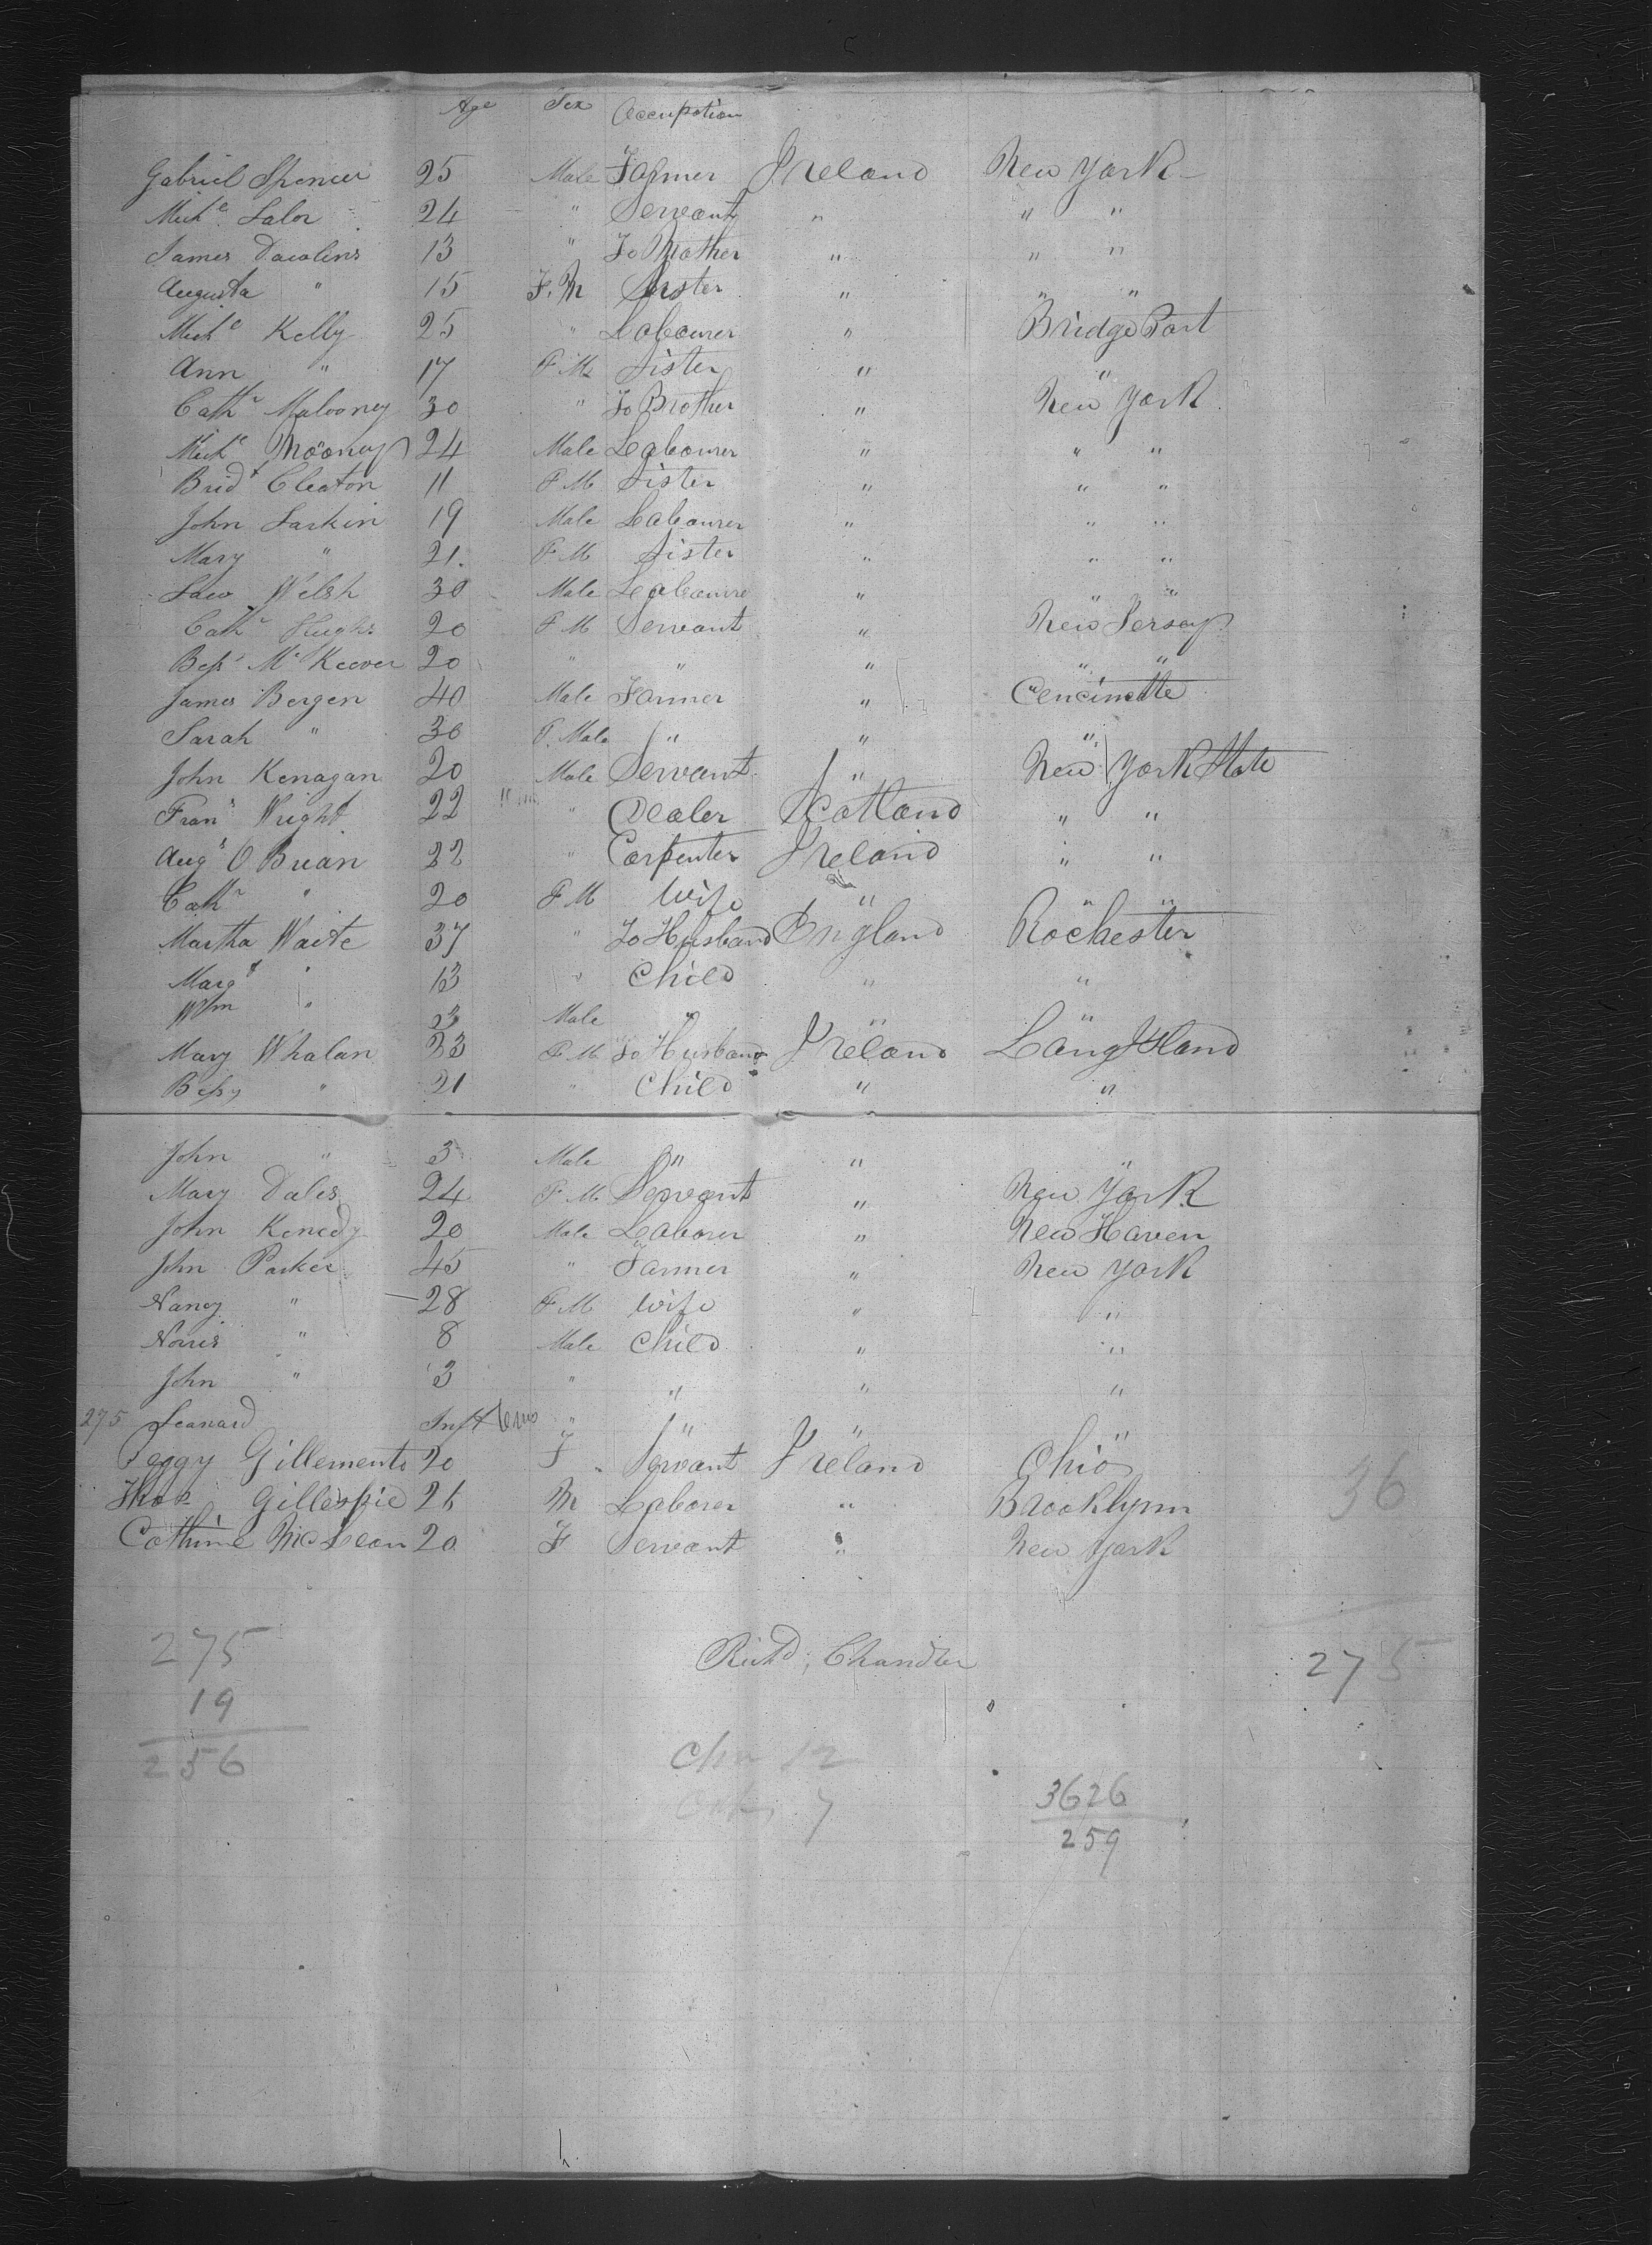 Age Sex Occupation
Gabriel Spencer 25 Male Farmer Ireland New York
Miche Lalor 24 " Servant " " "
James Dowlins 13 " To Mother " " "
Augusta " 15 F.M Sister " " "
Miche Kelly 25 " Labourer " Bridge Port
Ann " 17 F M Sister " "
Cathr Malooney 30 " To Brother " New York
Miche Mooney 24 Male Labourer " " "
Bridt Cleaton 11 F M Sister " " "
John Larkin 19 Male Labourer " " "
Mary " 21 F M Sister " " "
Law Welsh 30 Male Labourer " " "
Cathr Hughs 20 F M Servant " New Jersey
Bess McKeever 20 " " " " "
James Bergen 40 Male Farmer " Cencinatte
Sarah " 30 F. Male " " "
John Kenagan 20 Male Servant " New York State
Frans Wright 22 " Dealer Scotland " "
Augs O Brian 22 " Carpenter Ireland " "
Cathr " 20 F M Wife " " "
Martha Waite 37 " To Husband England Rochester
Margt " 13 " Child " "
Wm " 3 Male " " "
Mary Whalan 33 F M To Husband Ireland Long Island
Bessy " 21 " Child " "
John " 3 Male " " "
Mary Dales 24 F M Servant " New York
John Kenedy 20 Male Laborer " New Haven
John Parker 45 " Farmer " New York
Nancy " 28 F M Wife " "
Norris " 8 Male Child " "
John " 3 " " " "
275 Leonard Inft 6 mo " " " "
Peggy Gillements 20 F Servant Ireland Ohio
Thos Gillespie 26 M Laborer " Brooklynn 36
Cathrine McLean 20 F Servant " New York
275 Richd; Chandler 275
19
256 Chn 12
7
3626
259